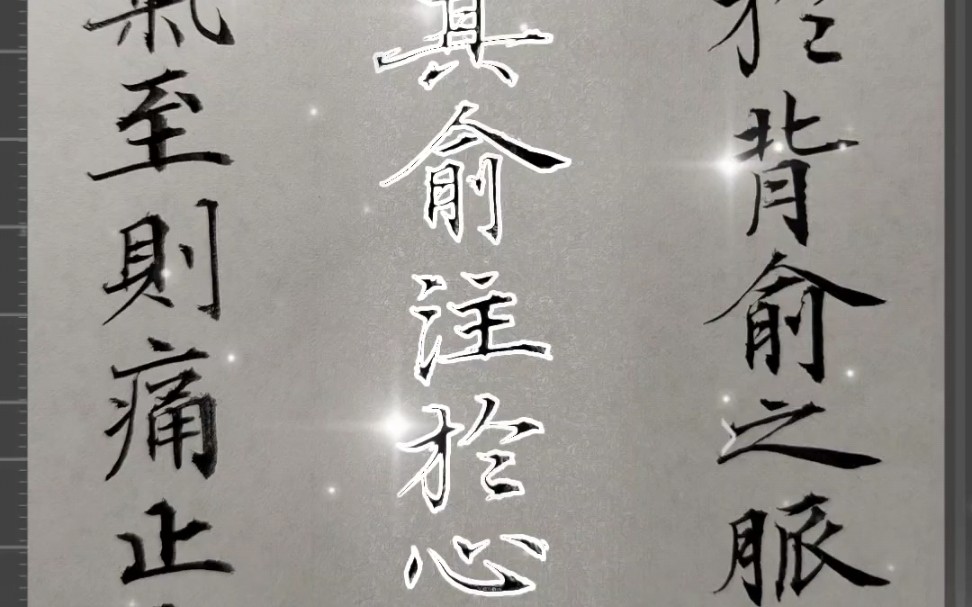 於背俞之脈
其俞注於心
氣至則痛止